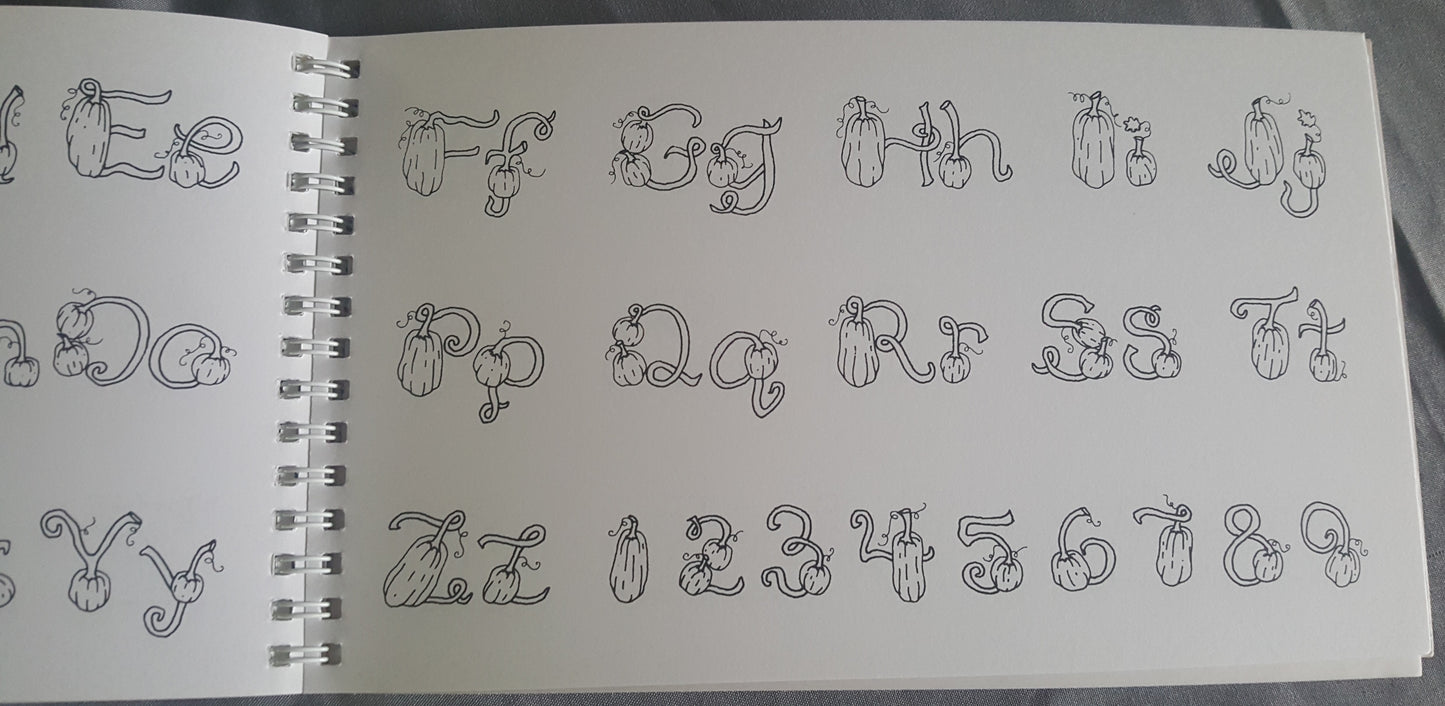 Ee Ff Gg Hh Ii Jj
Oo Pp Qq Rr Ss Tt
Yy Zz 1 2 3 4 5 6 7 8 9